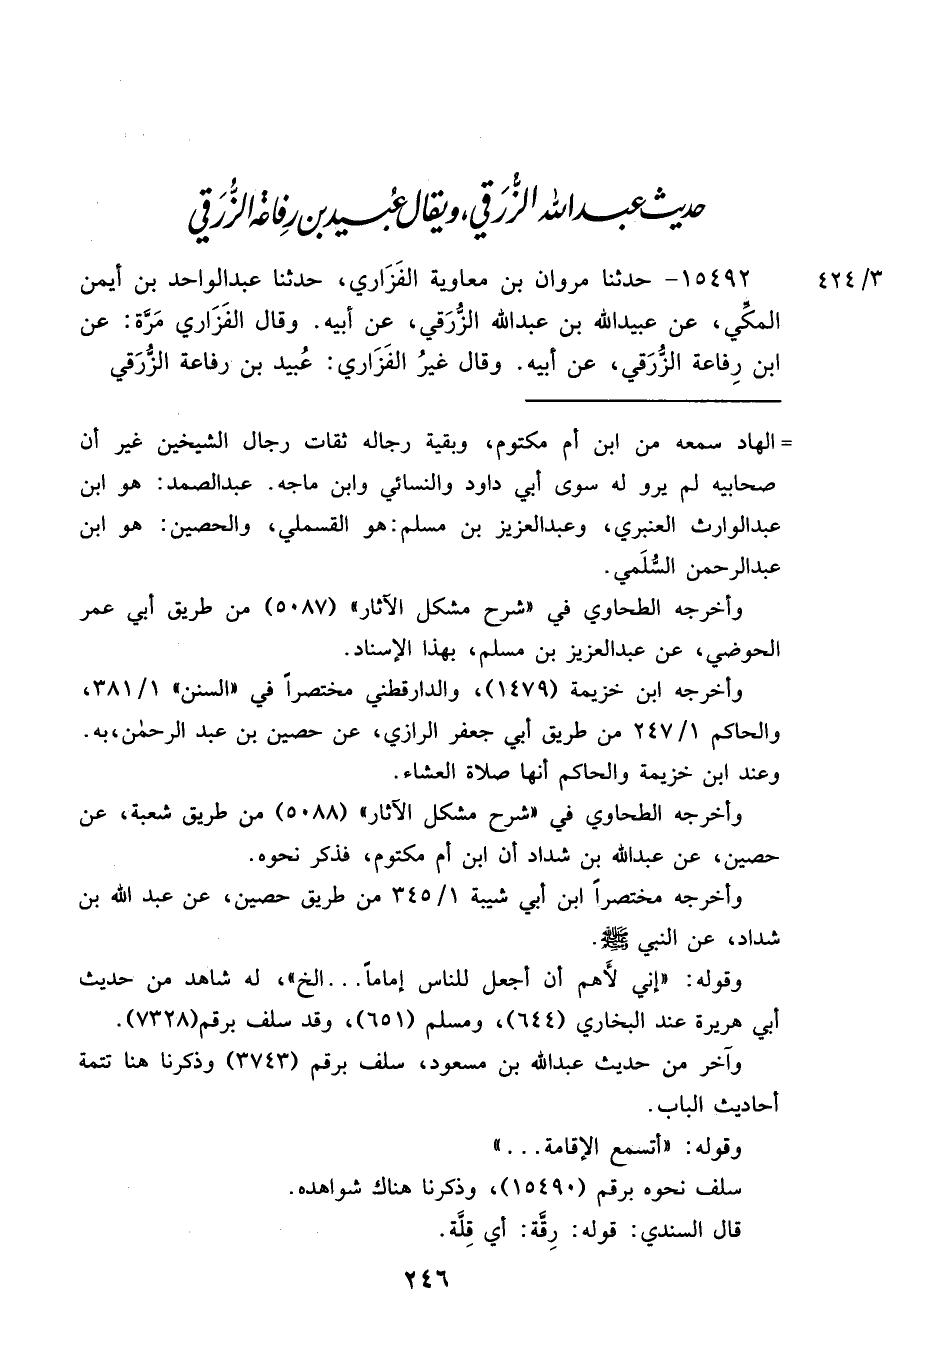 حديث عبد الله الزُّرَقي، ويقال عُبيد بن رِفاعة الزُّرَقي
٤٢٤/٣
١٥٤٩٢- حدثنا مروان بن معاوية الفَزَاري، حدثنا عبدالواحد بن أيمن
المكِّي، عن عبيدالله بن عبدالله الزُّرَقي، عن أبيه. وقال الفَزَاري مَرَّة: عن
ابن رِفاعة الزُّرَقي، عن أبيه. وقال غيرُ الفَزَاري: عُبيد بن رفاعة الزُّرَقي
= الهاد سمعه من ابن أم مكتوم، وبقية رجاله ثقات رجال الشيخين غير أن
صحابيه لم يرو له سوى أبي داود والنسائي وابن ماجه. عبدالصمد: هو ابن
عبدالوارث العنبري، وعبدالعزيز بن مسلم: هو القسملي، والحصين: هو ابن
عبدالرحمن السُّلَمي.
وأخرجه الطحاوي في «شرح مشكل الآثار» (٥٠٨٧) من طريق أبي عمر
الحوضي، عن عبدالعزيز بن مسلم، بهذا الإسناد.
وأخرجه ابن خزيمة (١٤٧٩)، والدارقطني مختصراً في «السنن» ٣٨١/١،
والحاكم ٢٤٧/١ من طريق أبي جعفر الرازي، عن حصين بن عبد الرحمٰن، به.
وعند ابن خزيمة والحاكم أنها صلاة العشاء.
وأخرجه الطحاوي في «شرح مشكل الآثار» (٥٠٨٨) من طريق شعبة، عن
حصين، عن عبدالله بن شداد أن ابن أم مكتوم، فذكر نحوه.
وأخرجه مختصراً ابن أبي شيبة ٣٤٥/١ من طريق حصين، عن عبد الله بن
شداد، عن النبي ﷺ.
وقوله: «إني لأَهم أن أجعل للناس إماماً...الخ»، له شاهد من حديث
أبي هريرة عند البخاري (٦٤٤)، ومسلم (٦٥١)، وقد سلف برقم(٧٣٢٨).
وآخر من حديث عبدالله بن مسعود، سلف برقم (٣٧٤٣) وذكرنا هنا تتمة
أحاديث الباب.
وقوله: «أتسمع الإقامة...»
سلف نحوه برقم (١٥٤٩٠)، وذكرنا هناك شواهده.
قال السندي: قوله: رِقَّة: أي قِلَّة.
٢٤٦